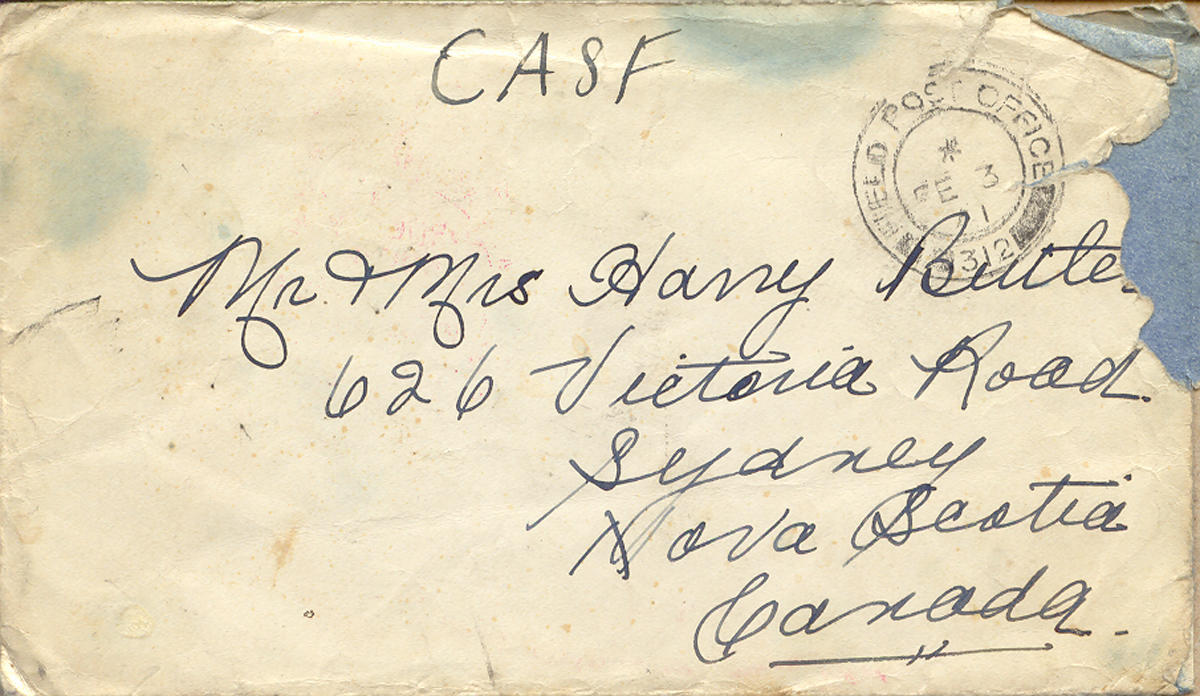 CASF
FIELD POST OFFICE
*
3
1
312
Mr. & Mrs Harry Butle
626 Victoria Road.
Sydney
Nova Scotia
Canada.